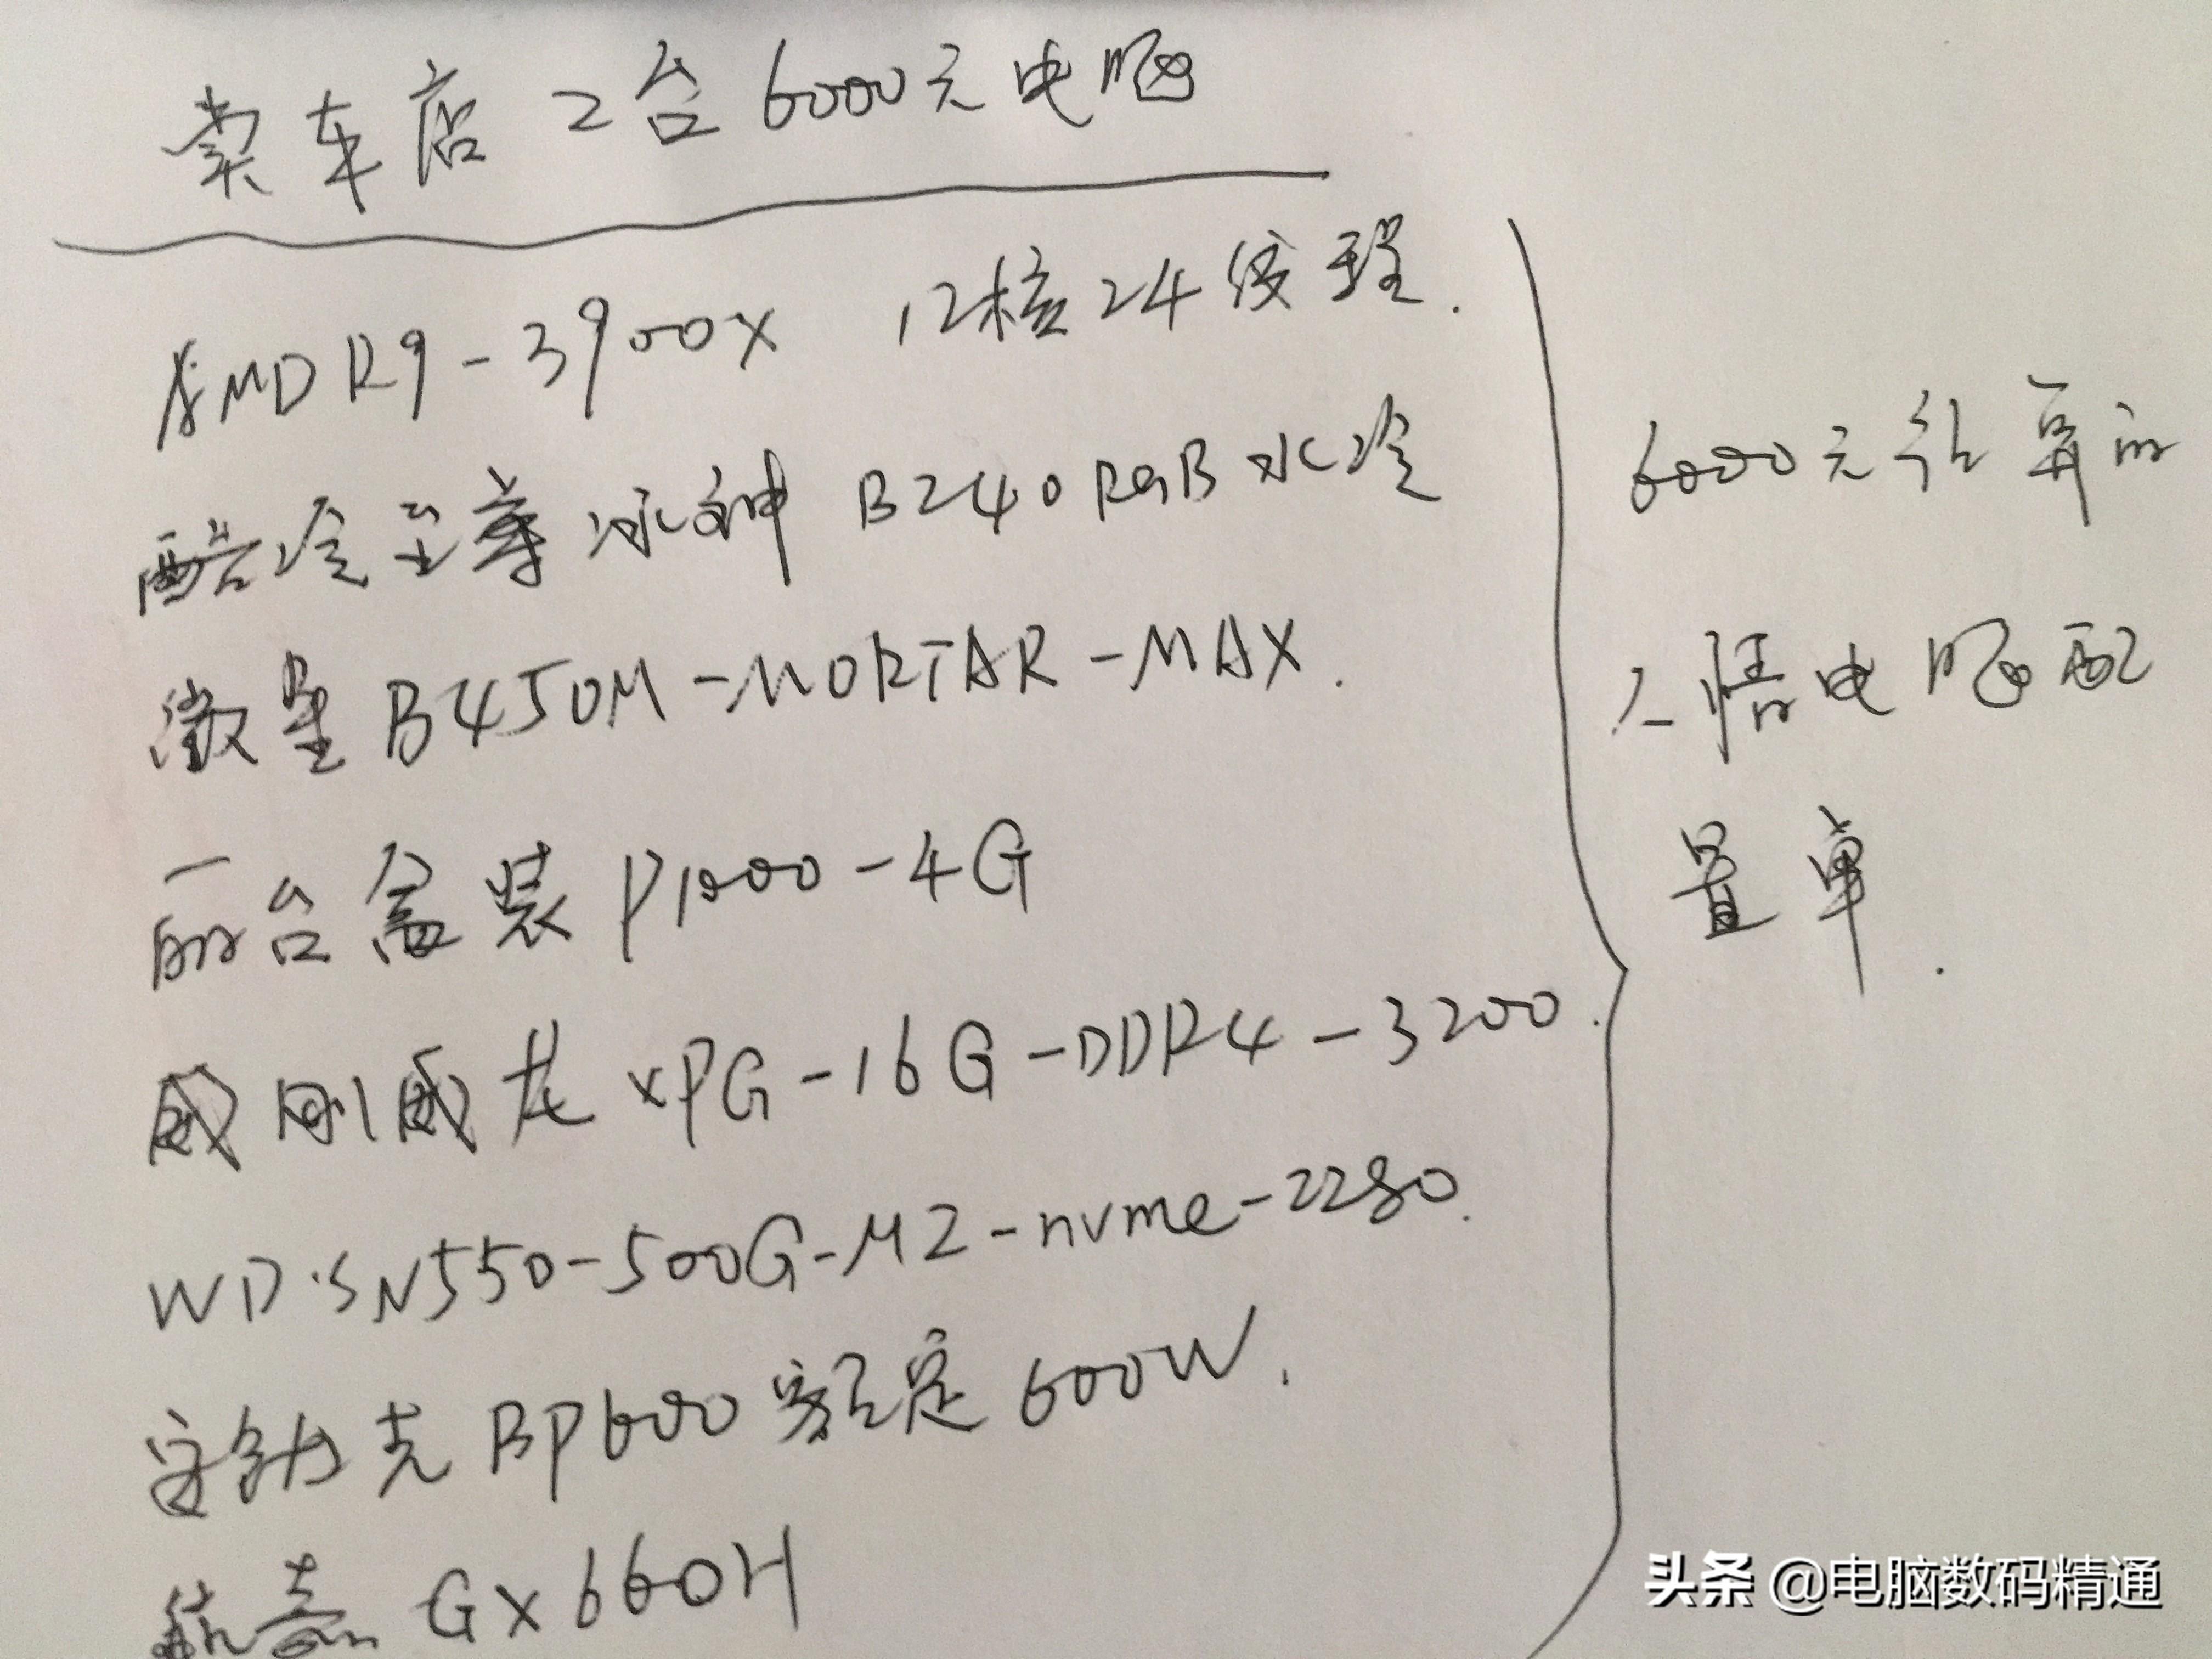 卖车店2台6000元电脑
AMD R9-3900X 12核24线程.
酷冷至尊冰神B240RGB水冷
微星B450M-MORTAR-MAX.
丽台盒装P1000-4G
威刚威龙XPG-16G-DDR4-3200.
WD·SN550-500G-M2-nvme-2280.
安钛克BP600额定600W.
航嘉GX660H
6000元预算的
人情电脑配
置单.
头条 @电脑数码精通